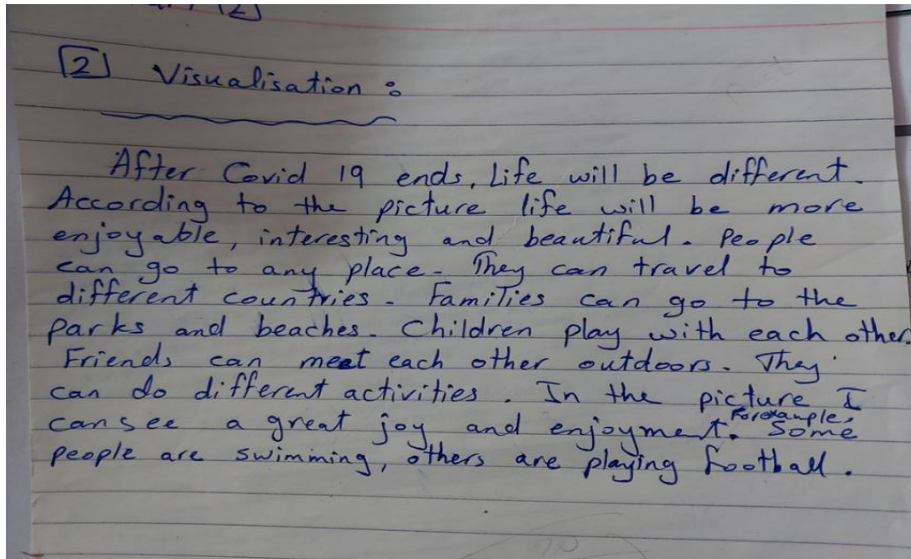 [2] Visualisation :
After Covid 19 ends, Life will be different.
According to the picture life will be more
enjoyable, interesting and beautiful. People
can go to any place. They can travel to
different countries. Families can go to the
parks and beaches. Children play with each other.
Friends can meet each other outdoors. They
can do different activities. In the picture I
can see a great joy and enjoyment. For example, Some
people are swimming, others are playing football.